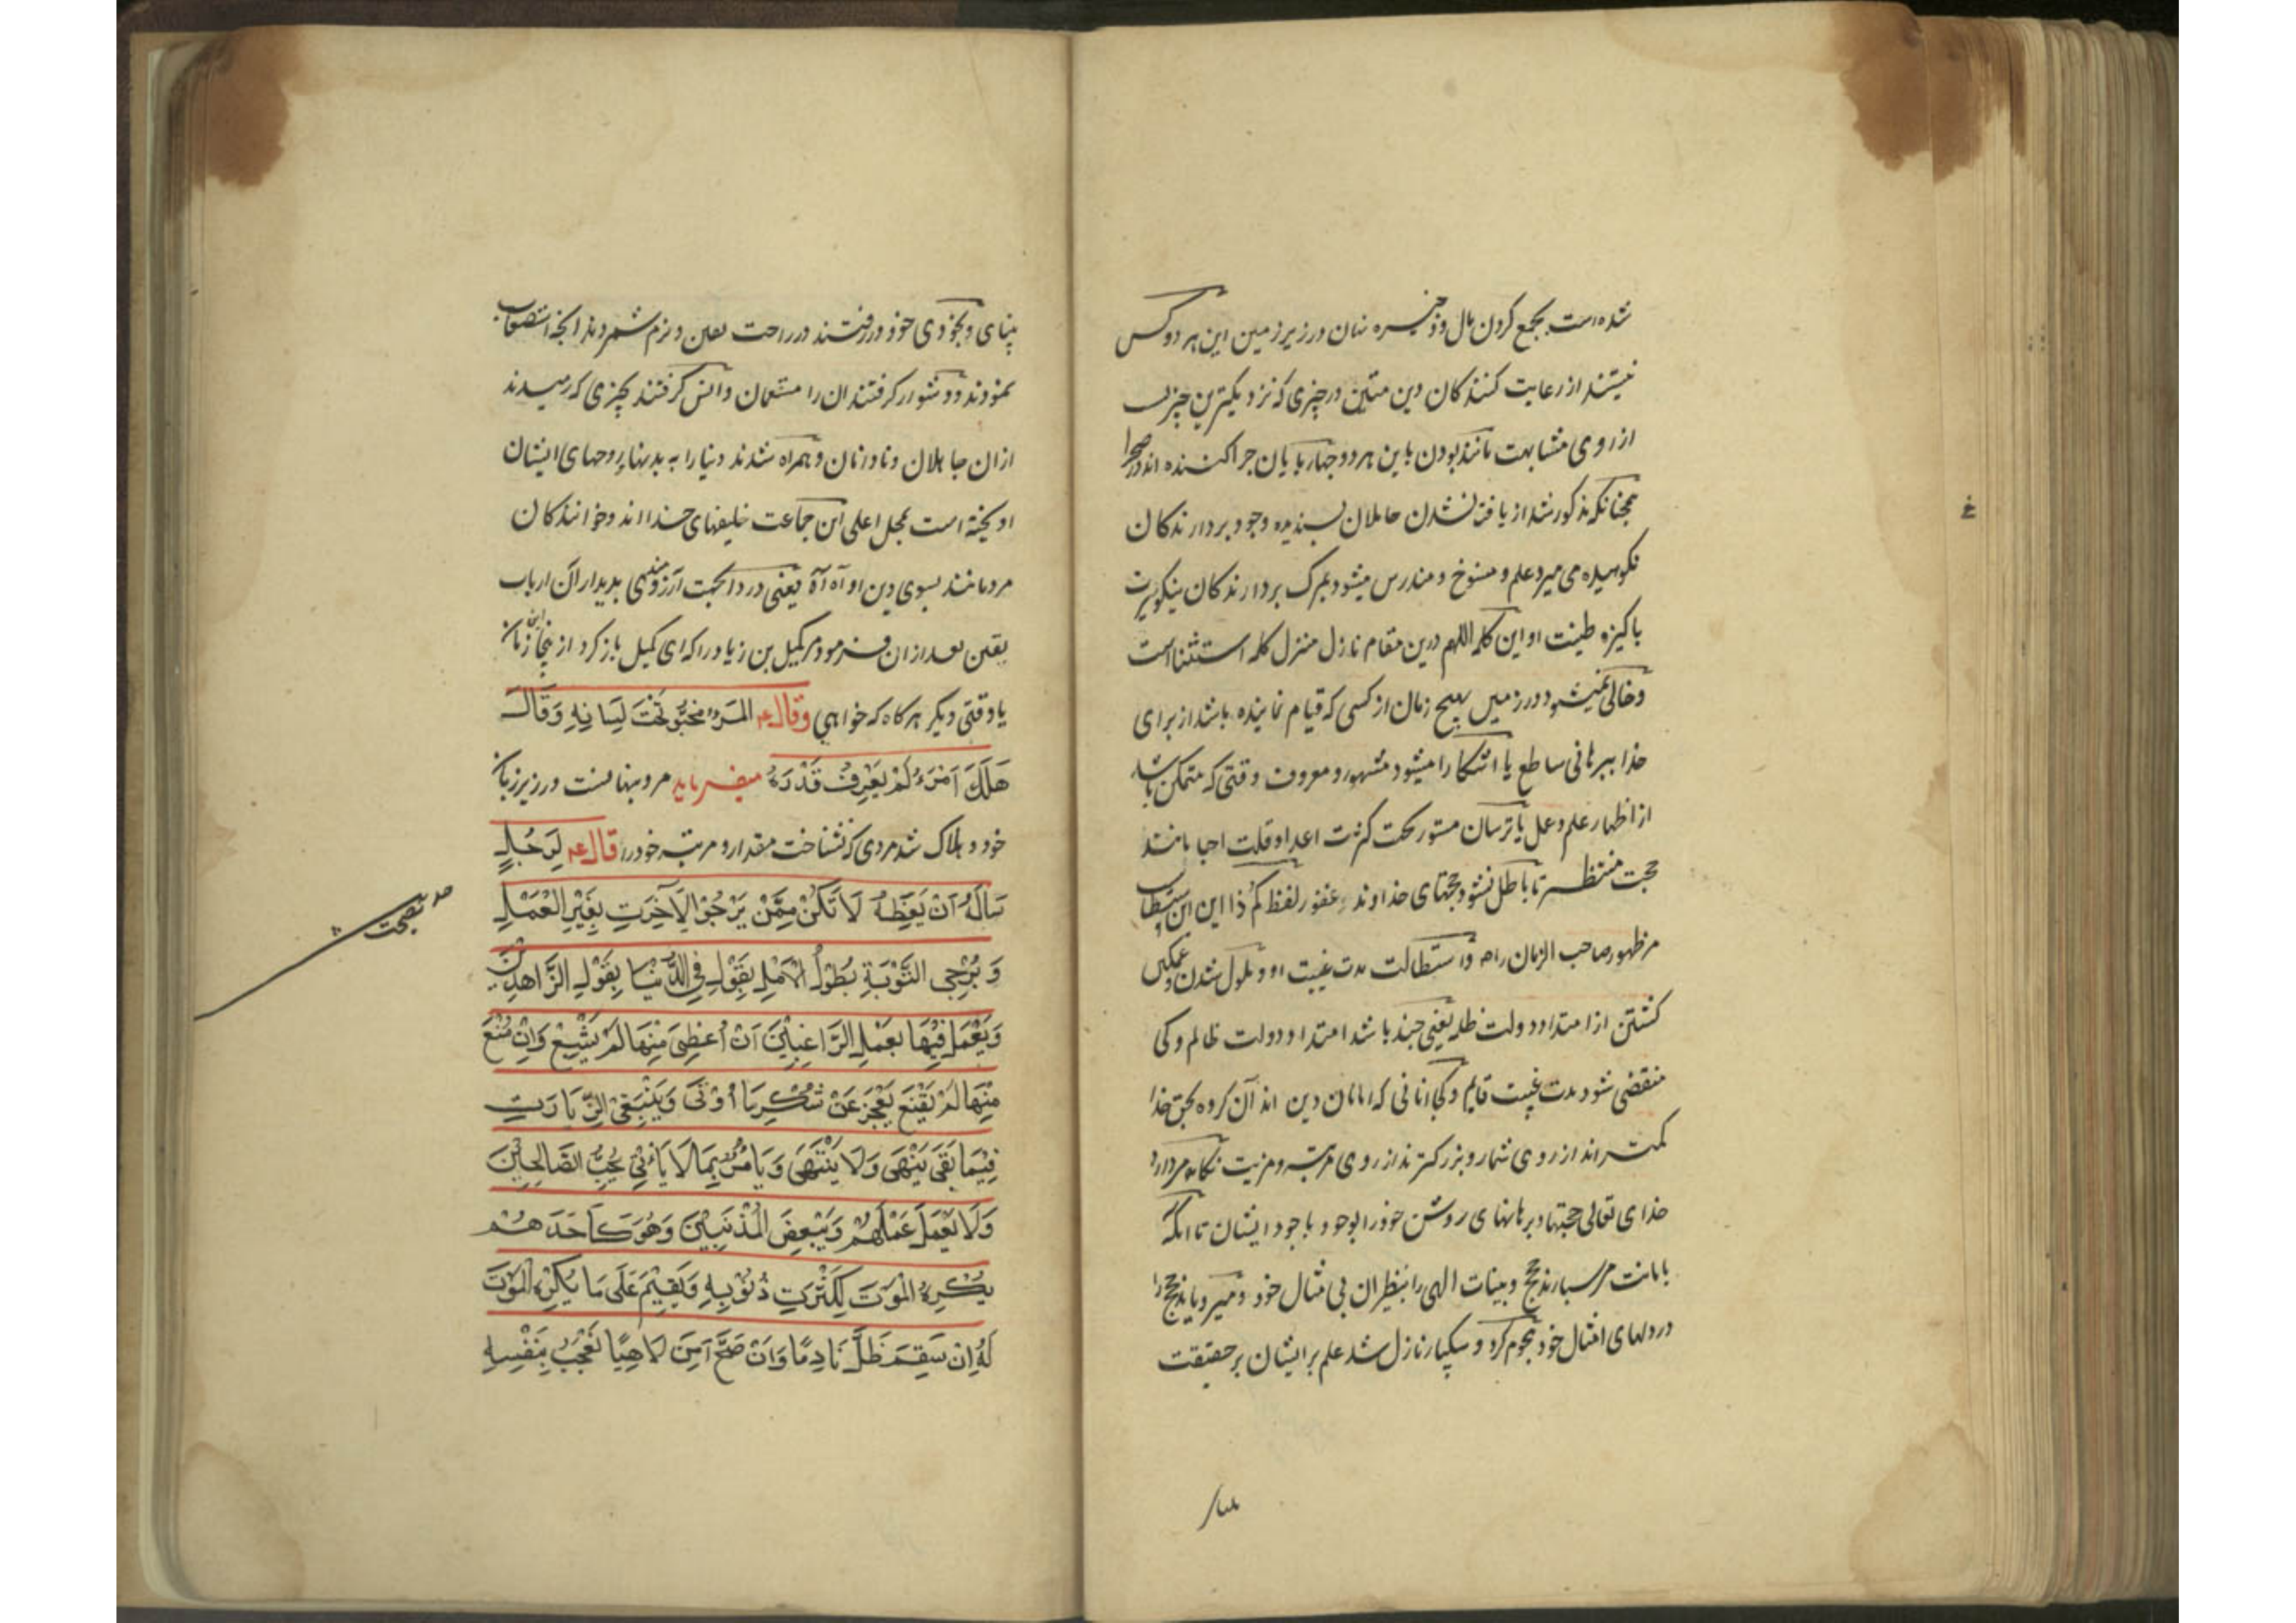 شده است بجمع کردن مال و ذخیره نهان در زیر زمین این هر دو کس
نیستند از رعایت کنندکان دین متین در چیزی که نزدیکترین چیزیست
از روی مشابهت مانند بودن باین هر دو چهار پایان چرا کننده اند در صحرا
همچنانکه مذکور شد از یافت نشدن حاملان پسندیده وجود بردارندکان
نکوهیده می میرد علم و منسوخ و مندرس میشود بمرک بردارندکان نیکو سیرت
پاکیزه طینت او این کلمه اللهم درین مقام نازل منزل کلمه استثنا است
و خالی نمیشود در زمین هیچ زمان از کسی که قیام نماینده باشد از برای
خدا ببرهانی ساطع یا اشکارا میشود مشهور و معروف وقتی که متمکن باشد
از اظهار علم و عمل یا ترسان مستور تحت کثرت اعدا و قلت احبا مانند
حجت منتظر تا باطل نشود حجتهای خداوند غفور لفظ کم ذا این
مر ظهور صاحب الزمان راه و استطالت مدت غیبت او و ملول شدن و غمکین
کشتن از امتداد دولت ظلمه یعنی چند باشد امتداد دولت ظالم و کی
منقضی شود مدت غیبت قایم و کجا انانی که امامان دین اند آن کروه بحق خدا
کمتر اند از روی شمار و بزرکترند از روی مرتبه و مزیت نکاه مردارد
خدای تعالی حجتها و برهانهای روشن خود را بوجود با جود ایشان تا انکه
بامانت مر سپارند حجج و بینات الهی را بنظیران بی مثال خود و میرویانند حجج را
در دلهای امثال خود هجوم کرد و بیکبار نازل شد علم بر ایشان بر حقیقت
بینای و بخودی خود در رفتند در راحت یقین و نرم شمردند انچه استصعاب
نمودند و دشوار کرفتند ان را متنعمان و انس کرفتند بچیزی که رمیدند
ازان جاهلان و نادانان و همراه شدند دنیا را به بدنها روحهای ایشان
اویخته است بمحل اعلی این جماعت خلیفهای خدا اند و خوانندکان
مردمانند بسوی دین او آه آه یعنی دردا بجهت آرزومندی بدیدار آن ارباب
یقین بعد ازان فرمود مر کمیل بن زیاد را که ای کمیل باز کرد از ینجا این زمان
یا وقتی دیکر هر کاه که خواهی وقال ع المَرْءُ مَخْبُوٌّ تَحْتَ لِسَانِهِ وَقَالَ
هَلَكَ اَمْرَءٌ لَمْ يَعْرِفْ قَدْرَهُ میفرماید مرد پنهانست در زیر زبان
خود و هلاک شد مردی که نشناخت مقدار و مرتبه خود را قال ع لِرَجُلٍ
سَاَلَهُ اَنْ يَعِظَهُ لَا تَكُنْ مِمَّنْ يَرْجُو الْآخِرَتِ بِغَيْرِ الْعَمَلِ
وَيُرَجِى التَّوْبَةِ بِطُولِ الْاَمَلِ يَقُولِ فِي الدُّنْيَا بِقَوْلِ الزَّاهِدِينَ
وَيَعْمَلُ فِيْهَا بِعَمَلِ الرَّاغِبِيْنَ اَنْ اُعْطِىَ مِنْهَا لَمْ يَشْبَعْ وَاِنْ مُنْعَ
مِنْهَا لَمْ يَقْنَعْ يَعْجِزَ عَنْ شُكْرِ مَا اُوْتَى وَيَبْتَغِى الزِّيَادَتِ
فِيْمَا بَقَى يَنْهَى وَلَا يَنْتَهَى وَيَامُرُ بِمَا لَا يَاْتِي يُحِبُّ الصَّالِحِيْنَ
وَلَا يَعْمَلَ عَمَلَهُمْ وَيَبْعِضَ الْمُذْنِبِيْنَ وَهُوَ كَاَحَدَ هُمْ
يَكْرِهُ الْمَوْتَ لِكَثْرَتِ ذُنُوبِهِ وَيَقِيْمَ عَلَى مَا يَكْرَهِ الْمَوْتَ
لَهُ اِنْ سَقِمَ ظَلَّ نَادِمًا وَاَنْ صَحَّ اَمِنَ لَاهِيًا يُعْجَبُ بِنَفْسِهِ
در نصیحت